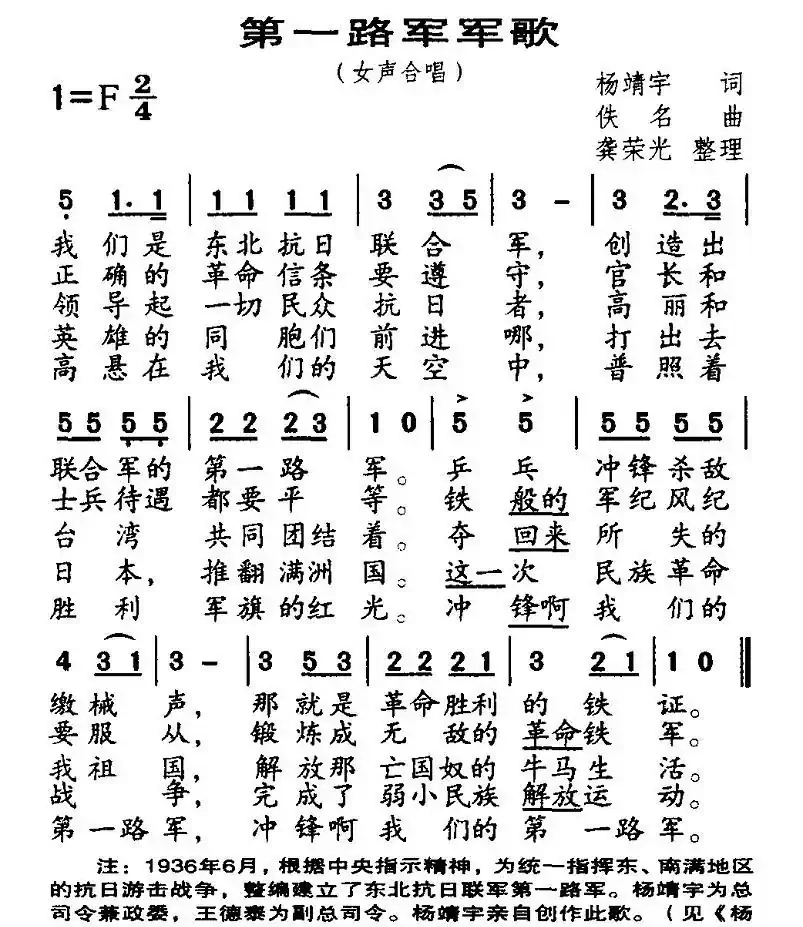 第一路军军歌
（女声合唱）
1=F 2/4
杨靖宇 词
佚名 曲
龚荣光 整理
5 1. 1 | 1 1 1 1 | 3 3 5 | 3 - | 3 2. 3 |
我们是 东北抗日 联合 军， 创造出
正确的 革命信条 要遵 守， 官长和
领导起 一切民众 抗日 者， 高丽和
英雄的 同胞们 前进 哪， 打出去
高悬在 我们的 天空 中， 普照着
5 5 5 5 | 2 2 2 3 | 1 0 | 5 5 | 5 5 5 5 |
联合军的 第一路 军。 乒乓 冲锋杀敌
士兵待遇 都要平 等。 铁般的 军纪风纪
台湾 共同团结 着。 夺回来 所失的
日本， 推翻满洲 国。 这一次 民族革命
胜利 军旗的红 光。 冲锋啊 我们的
4 3 1 | 3 - | 3 5 3 | 2 2 2 1 | 3 2 1 | 1 0 ‖
缴械 声， 那就是 革命胜利 的铁 证。
要服 从， 锻炼成 无敌的 革命铁 军。
我祖 国， 解放那 亡国奴的 牛马生 活。
战 争， 完成了 弱小民族 解放运 动。
第一路 军， 冲锋啊 我们的 第一路 军。
注：1936年6月，根据中央指示精神，为统一指挥东、南满地区
的抗日游击战争，整编建立了东北抗日联军第一路军。杨靖宇为总
司令兼政委，王德泰为副总司令。杨靖宇亲自创作此歌。（见《杨